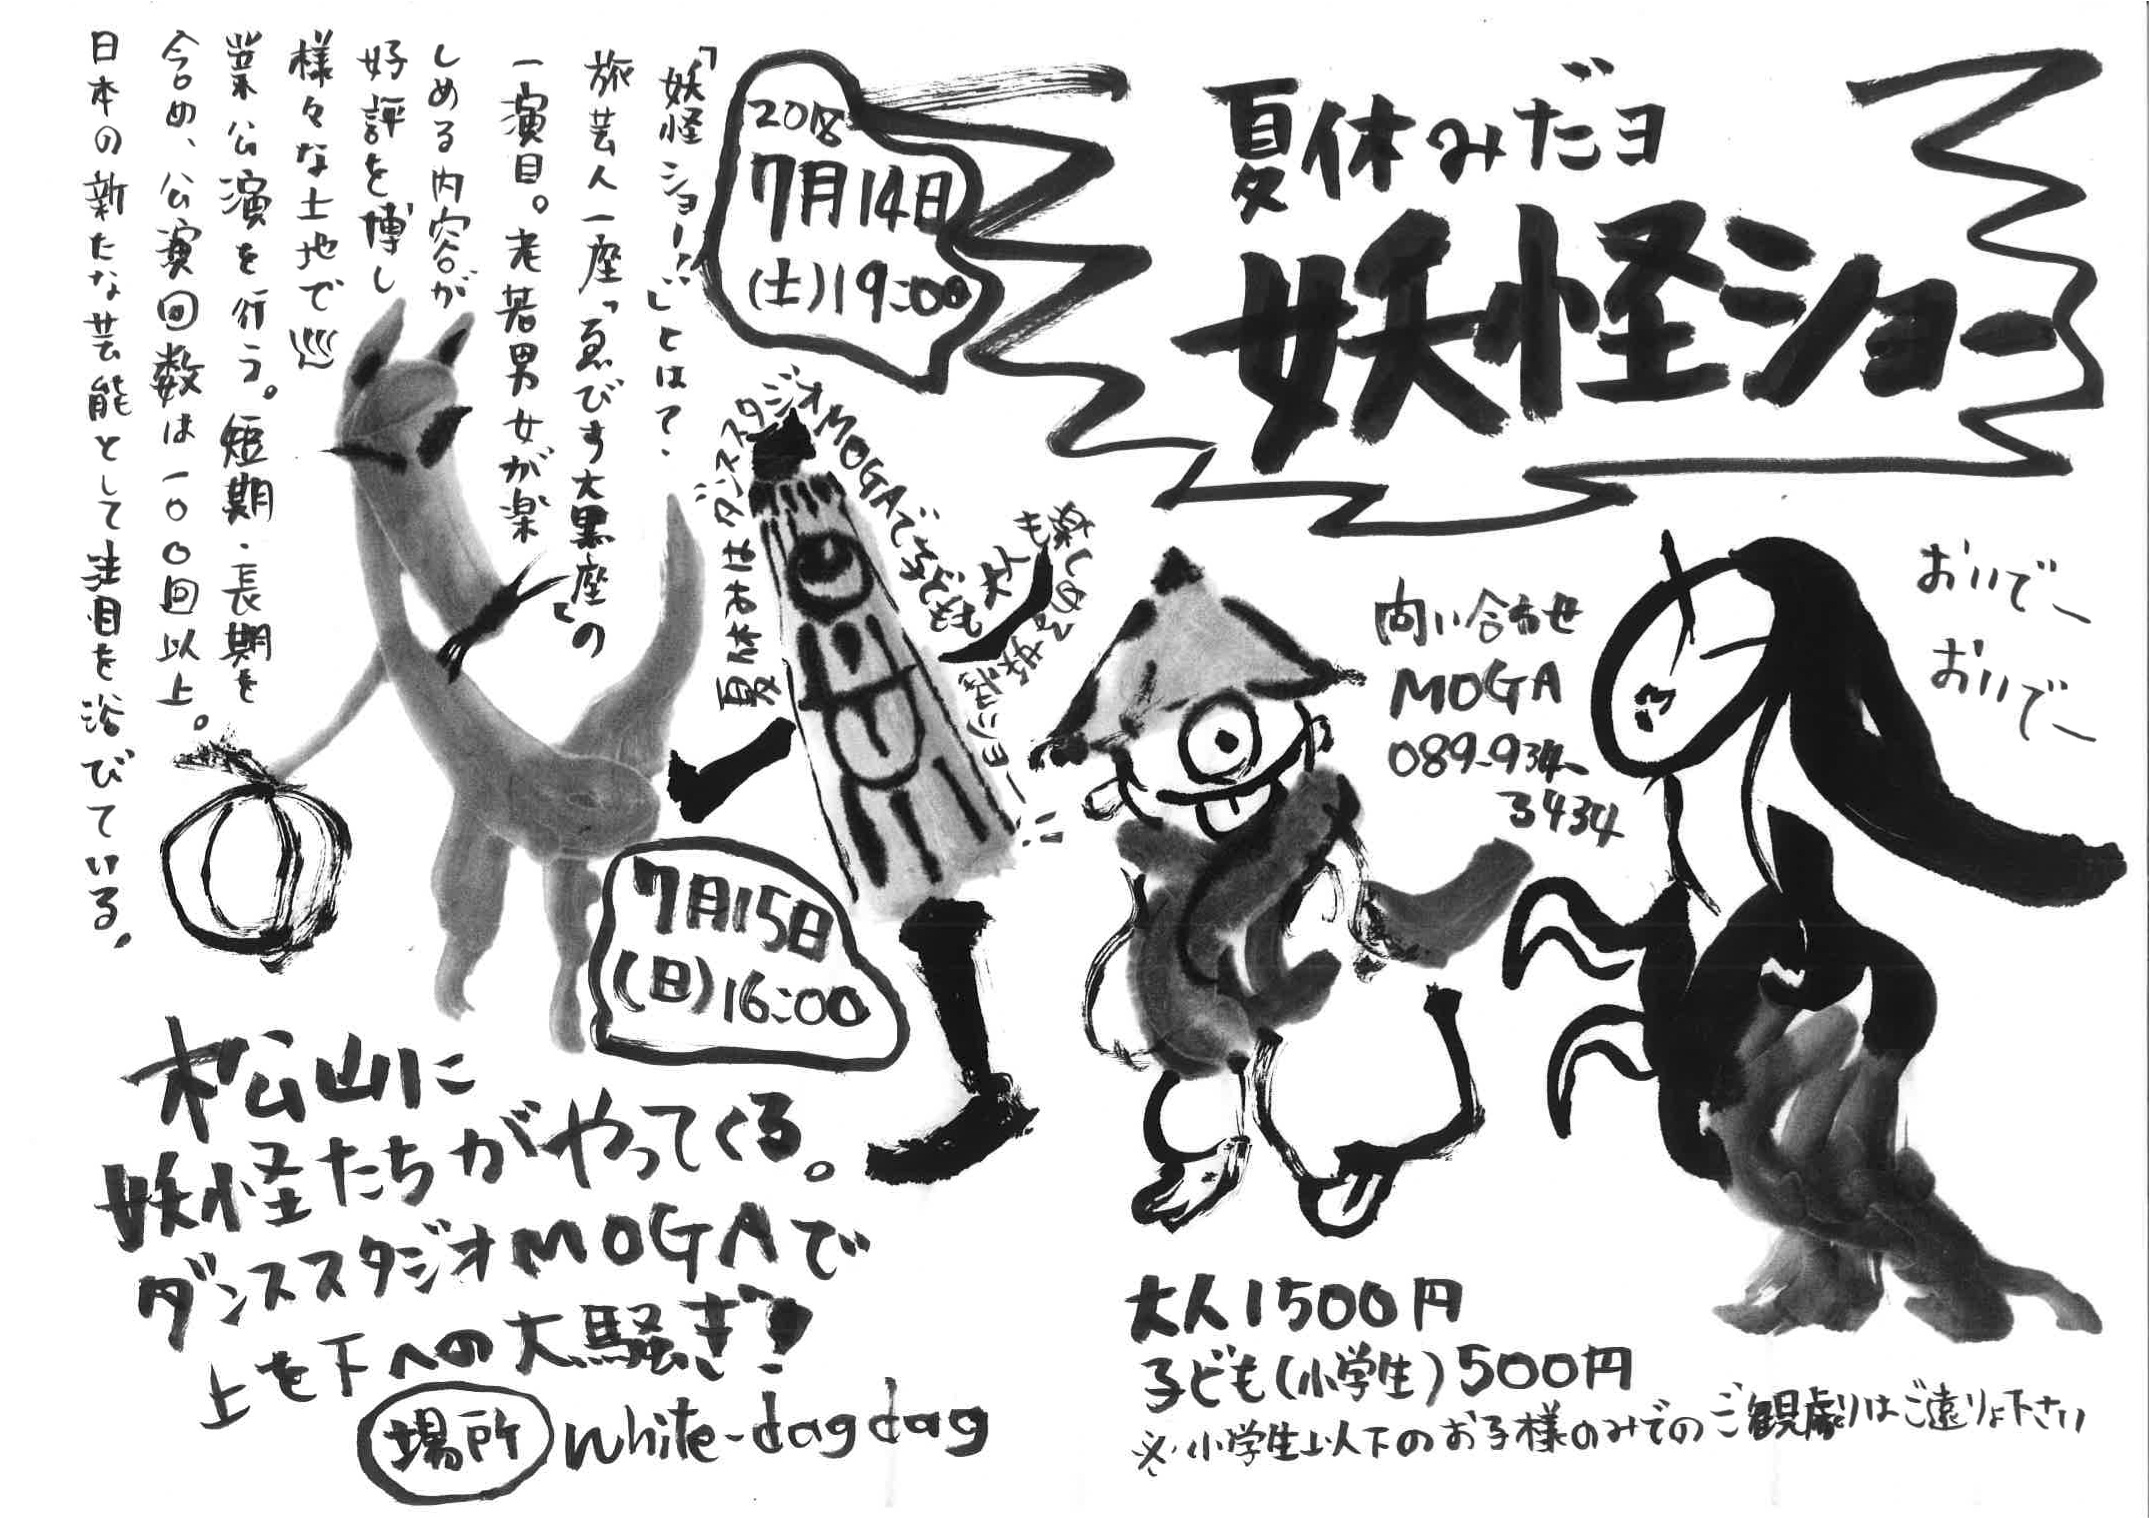 夏休みだヨ
妖怪ショー
2018
7月14日
(土)19:00
「妖怪ショー!!」とは?
旅芸人一座「ゑびす大黒座」の
一演目。老若男女が楽
しめる内容が
好評を博し
様々な土地で
業公演を行う。短期・長期を
含め、公演回数は一〇〇回以上。
日本の新たな芸能として注目を浴びている。
夏休みはダンススタジオMOGAで子ども
も大人も
楽しめる妖怪ショー!!
おいでー
おいでー
問い合わせ
MOGA
089-934-
3434
7月15日
(日)16:00
松山に
妖怪たちがやってくる。
ダンススタジオMOGAで
上を下への大騒ぎ?
場所 white-dagdag
大人1500円
子ども(小学生)500円
※小学生以下のお子様のみでのご観劇はご遠りょ下さい